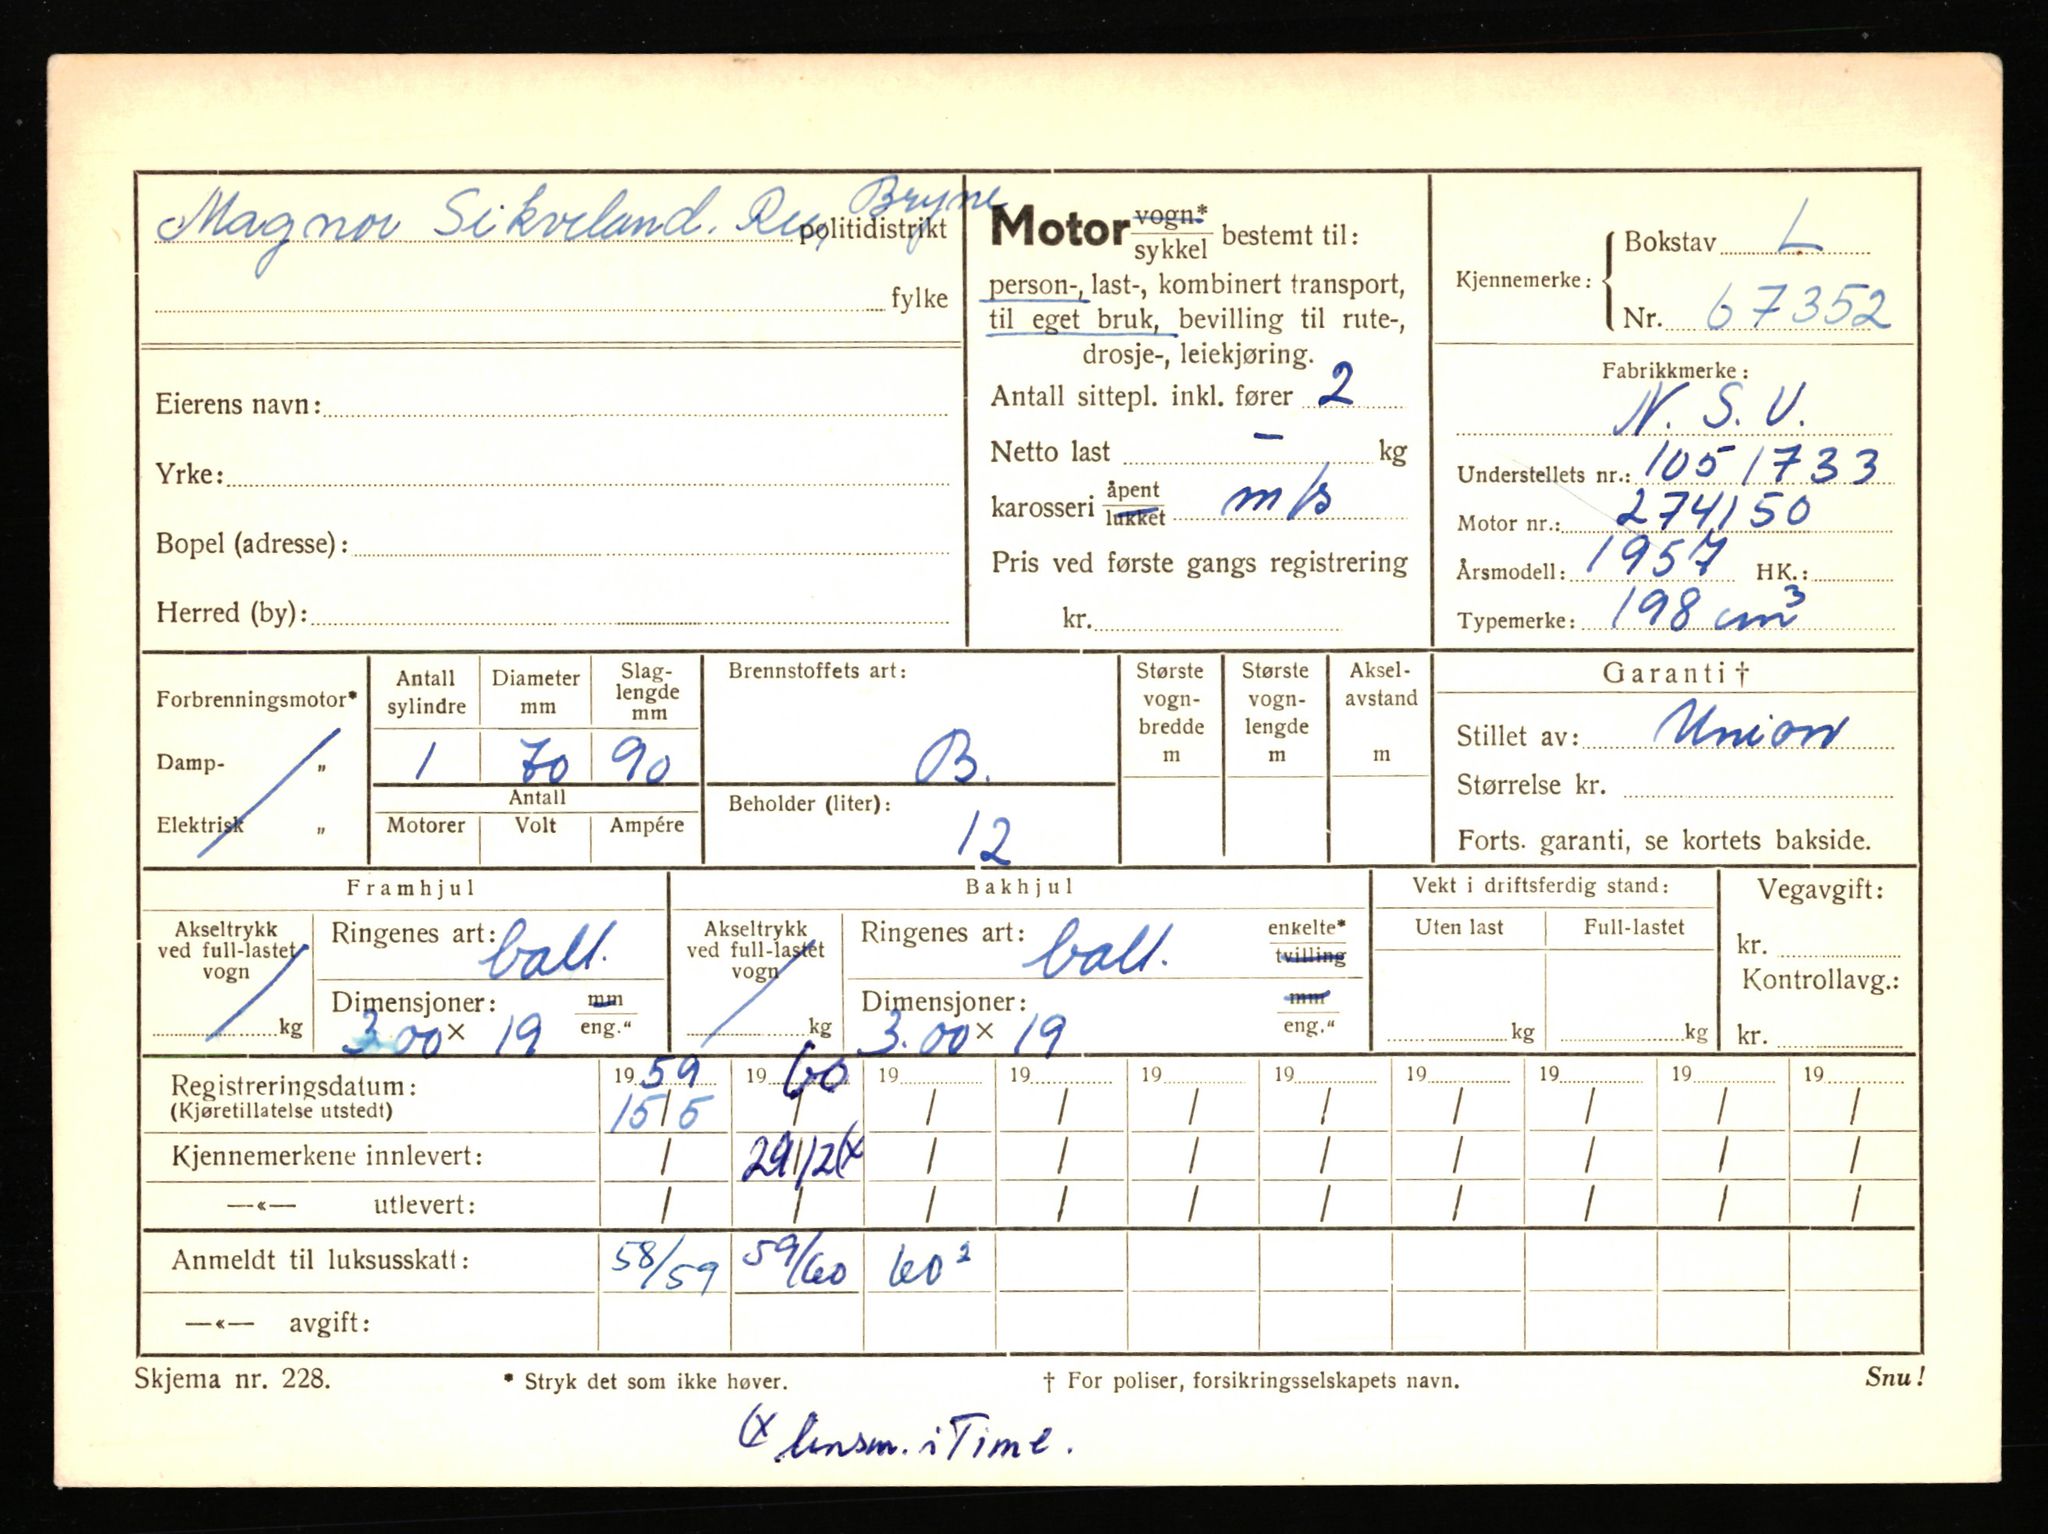 Magnor Sikveland. Re, Bryne politidistrikt
fylke
Eierens navn:
Yrke:
Bopel (adresse):
Herred (by):
Motor vogn* sykkel bestemt til:
person-, last-, kombinert transport,
til eget bruk, bevilling til rute-,
drosje-, leiekjøring.
Antall sittepl. inkl. fører 2
Netto last – kg
karosseri åpent lukket m/s
Pris ved første gangs registrering
kr.
Kjennemerke: Bokstav L
Nr. 67352
Fabrikkmerke:
N. S. U.
Understellets nr.: 1051733
Motor nr.: 274150
Årsmodell: 1957 HK.:
Typemerke: 198 cm³
Forbrenningsmotor*
Damp- „
Elektrisk „
Antall sylindre
Diameter mm
Slag-
lengde
mm
1 70 90
Antall
Motorer Volt Ampére
Brennstoffets art:
B.
Beholder (liter):
12
Største
vogn-
bredde
m
Største
vogn-
lengde
m
Aksel-
avstand
m
Garanti †
Stillet av: Union
Størrelse kr.
Forts. garanti, se kortets bakside.
Framhjul
Akseltrykk
ved full-lastet
vogn
kg
Ringenes art: ball.
Dimensjoner: mm eng."
3.00 x 19
Bakhjul
Akseltrykk
ved full-lastet
vogn
kg
Ringenes art: ball. enkelte* tvilling
Dimensjoner: mm eng."
3.00 x 19
Vekt i driftsferdig stand:
Uten last Full-lastet
kg kg
Vegavgift:
kr.
Kontrollavg.:
kr.
Registreringsdatum: 1959 1960 19 19 19 19 19 19 19 19
(Kjøretillatelse utstedt) 15/5 / / / / / / / / /
Kjennemerkene innlevert: / 29/12 (x / / / / / / / /
—«— utlevert: / / / / / / / / / /
Anmeldt til luksusskatt: 58/59 59/60 60²
—«— avgift:
Skjema nr. 228. * Stryk det som ikke høver. † For poliser, forsikringsselskapets navn. Snu!
(x lensm. i Time.